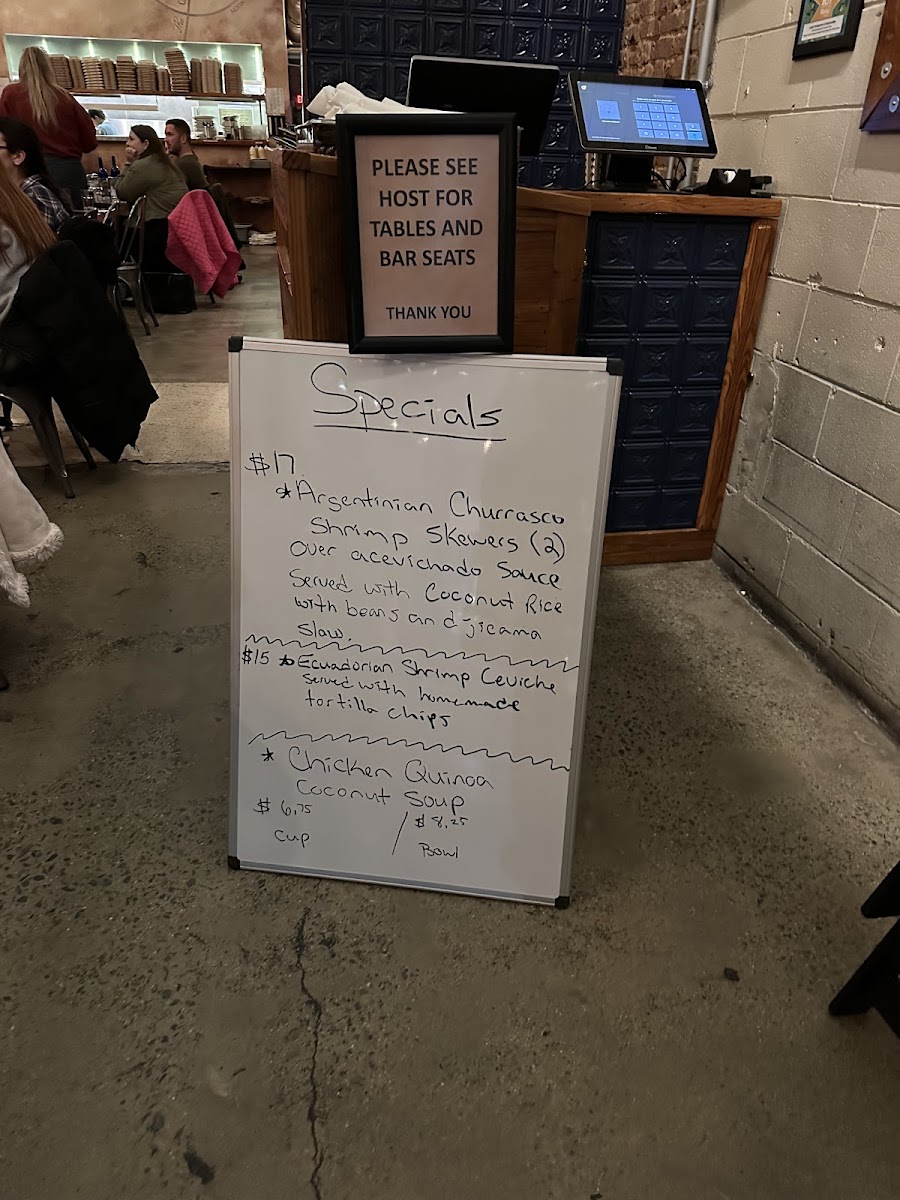 PLEASE SEE
HOST FOR
TABLES AND
BAR SEATS
THANK YOU
Specials
$17
*Argentinian Churrasco
Shrimp Skewers (2)
Over acevichado Sauce
Served with Coconut Rice
with beans and jicama
Slaw.
$15 *Ecuadorian Shrimp Ceviche
Served with homemade
tortilla chips
* Chicken Quinoa
Coconut Soup
$6,75 / $8,25
Cup Bowl